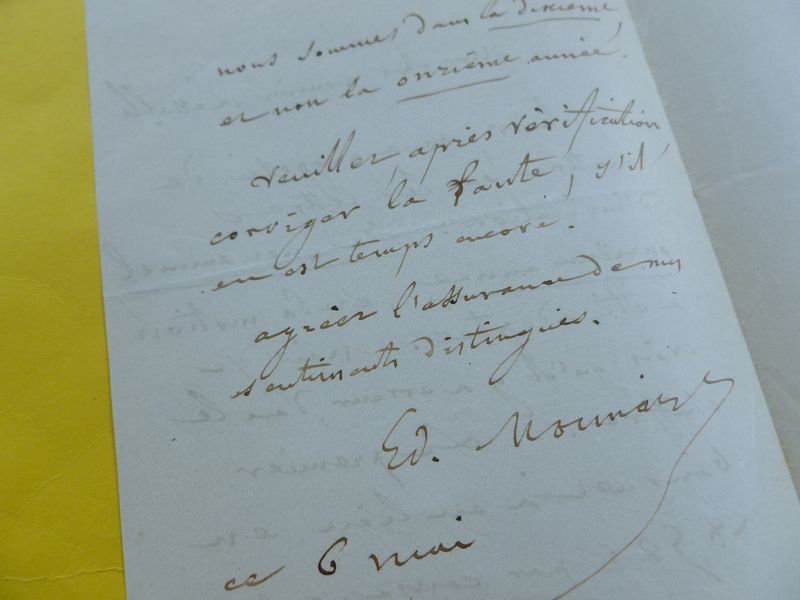 nous sommes dans la dixième,
et non la onzième année.
veuillez, après vérification
corriger la faute, s'il
en est temps encore.
agréer l'assurance de mes
sentiments distingués.
Ed. Monnais
ce 6 mai